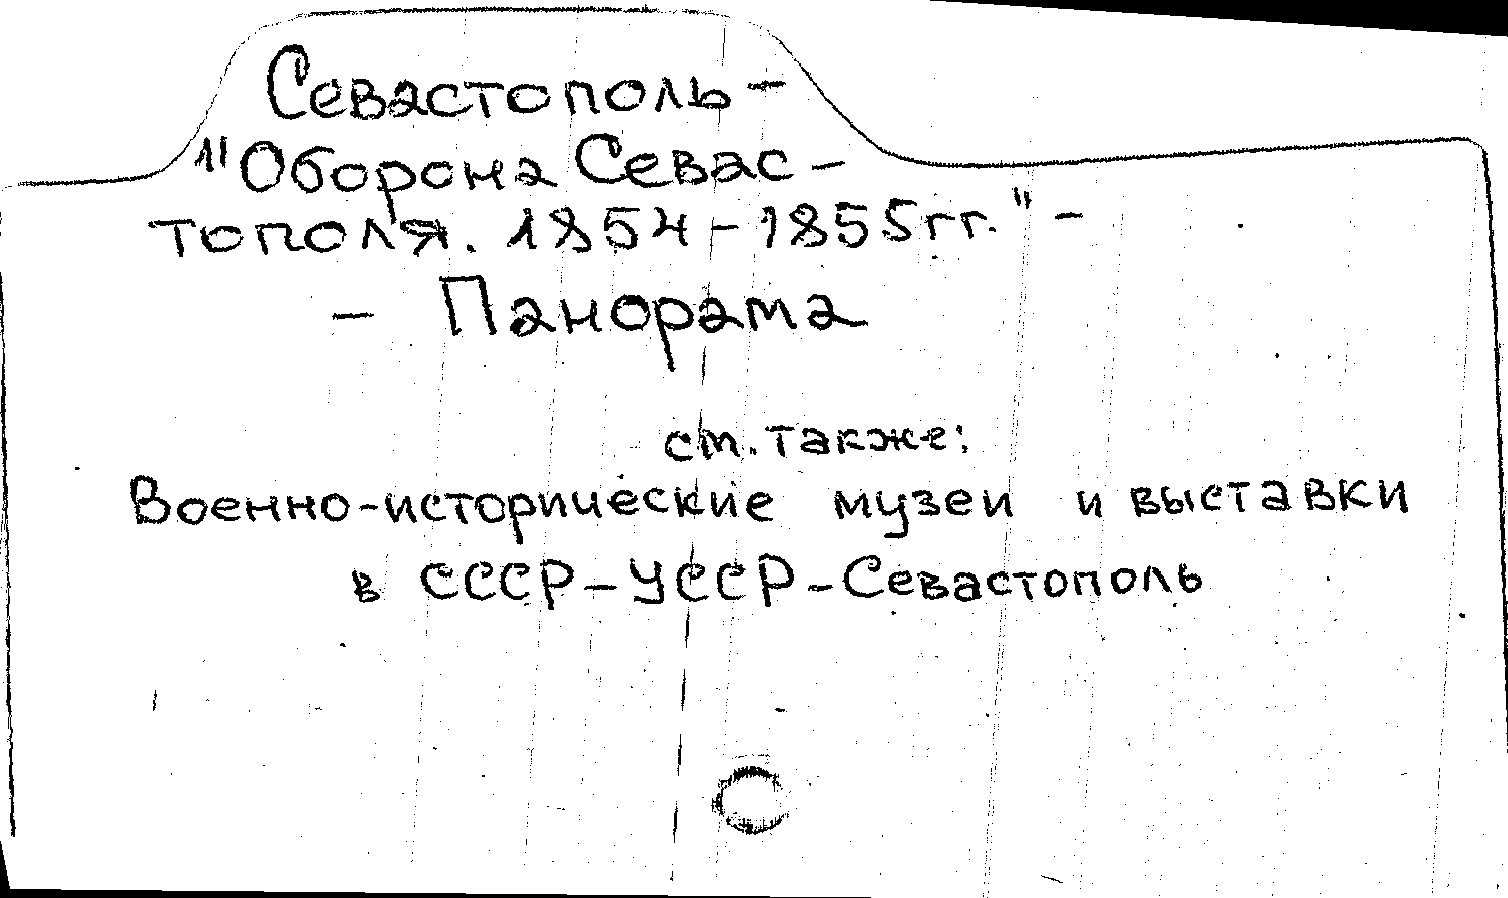 Севастополь -
"Оборона Севас -
тополя. 1854 - 1855 гг." -
- Панорама
см. также:
Военно-исторические музеи и выставки
в СССР - УССР - Севастополь